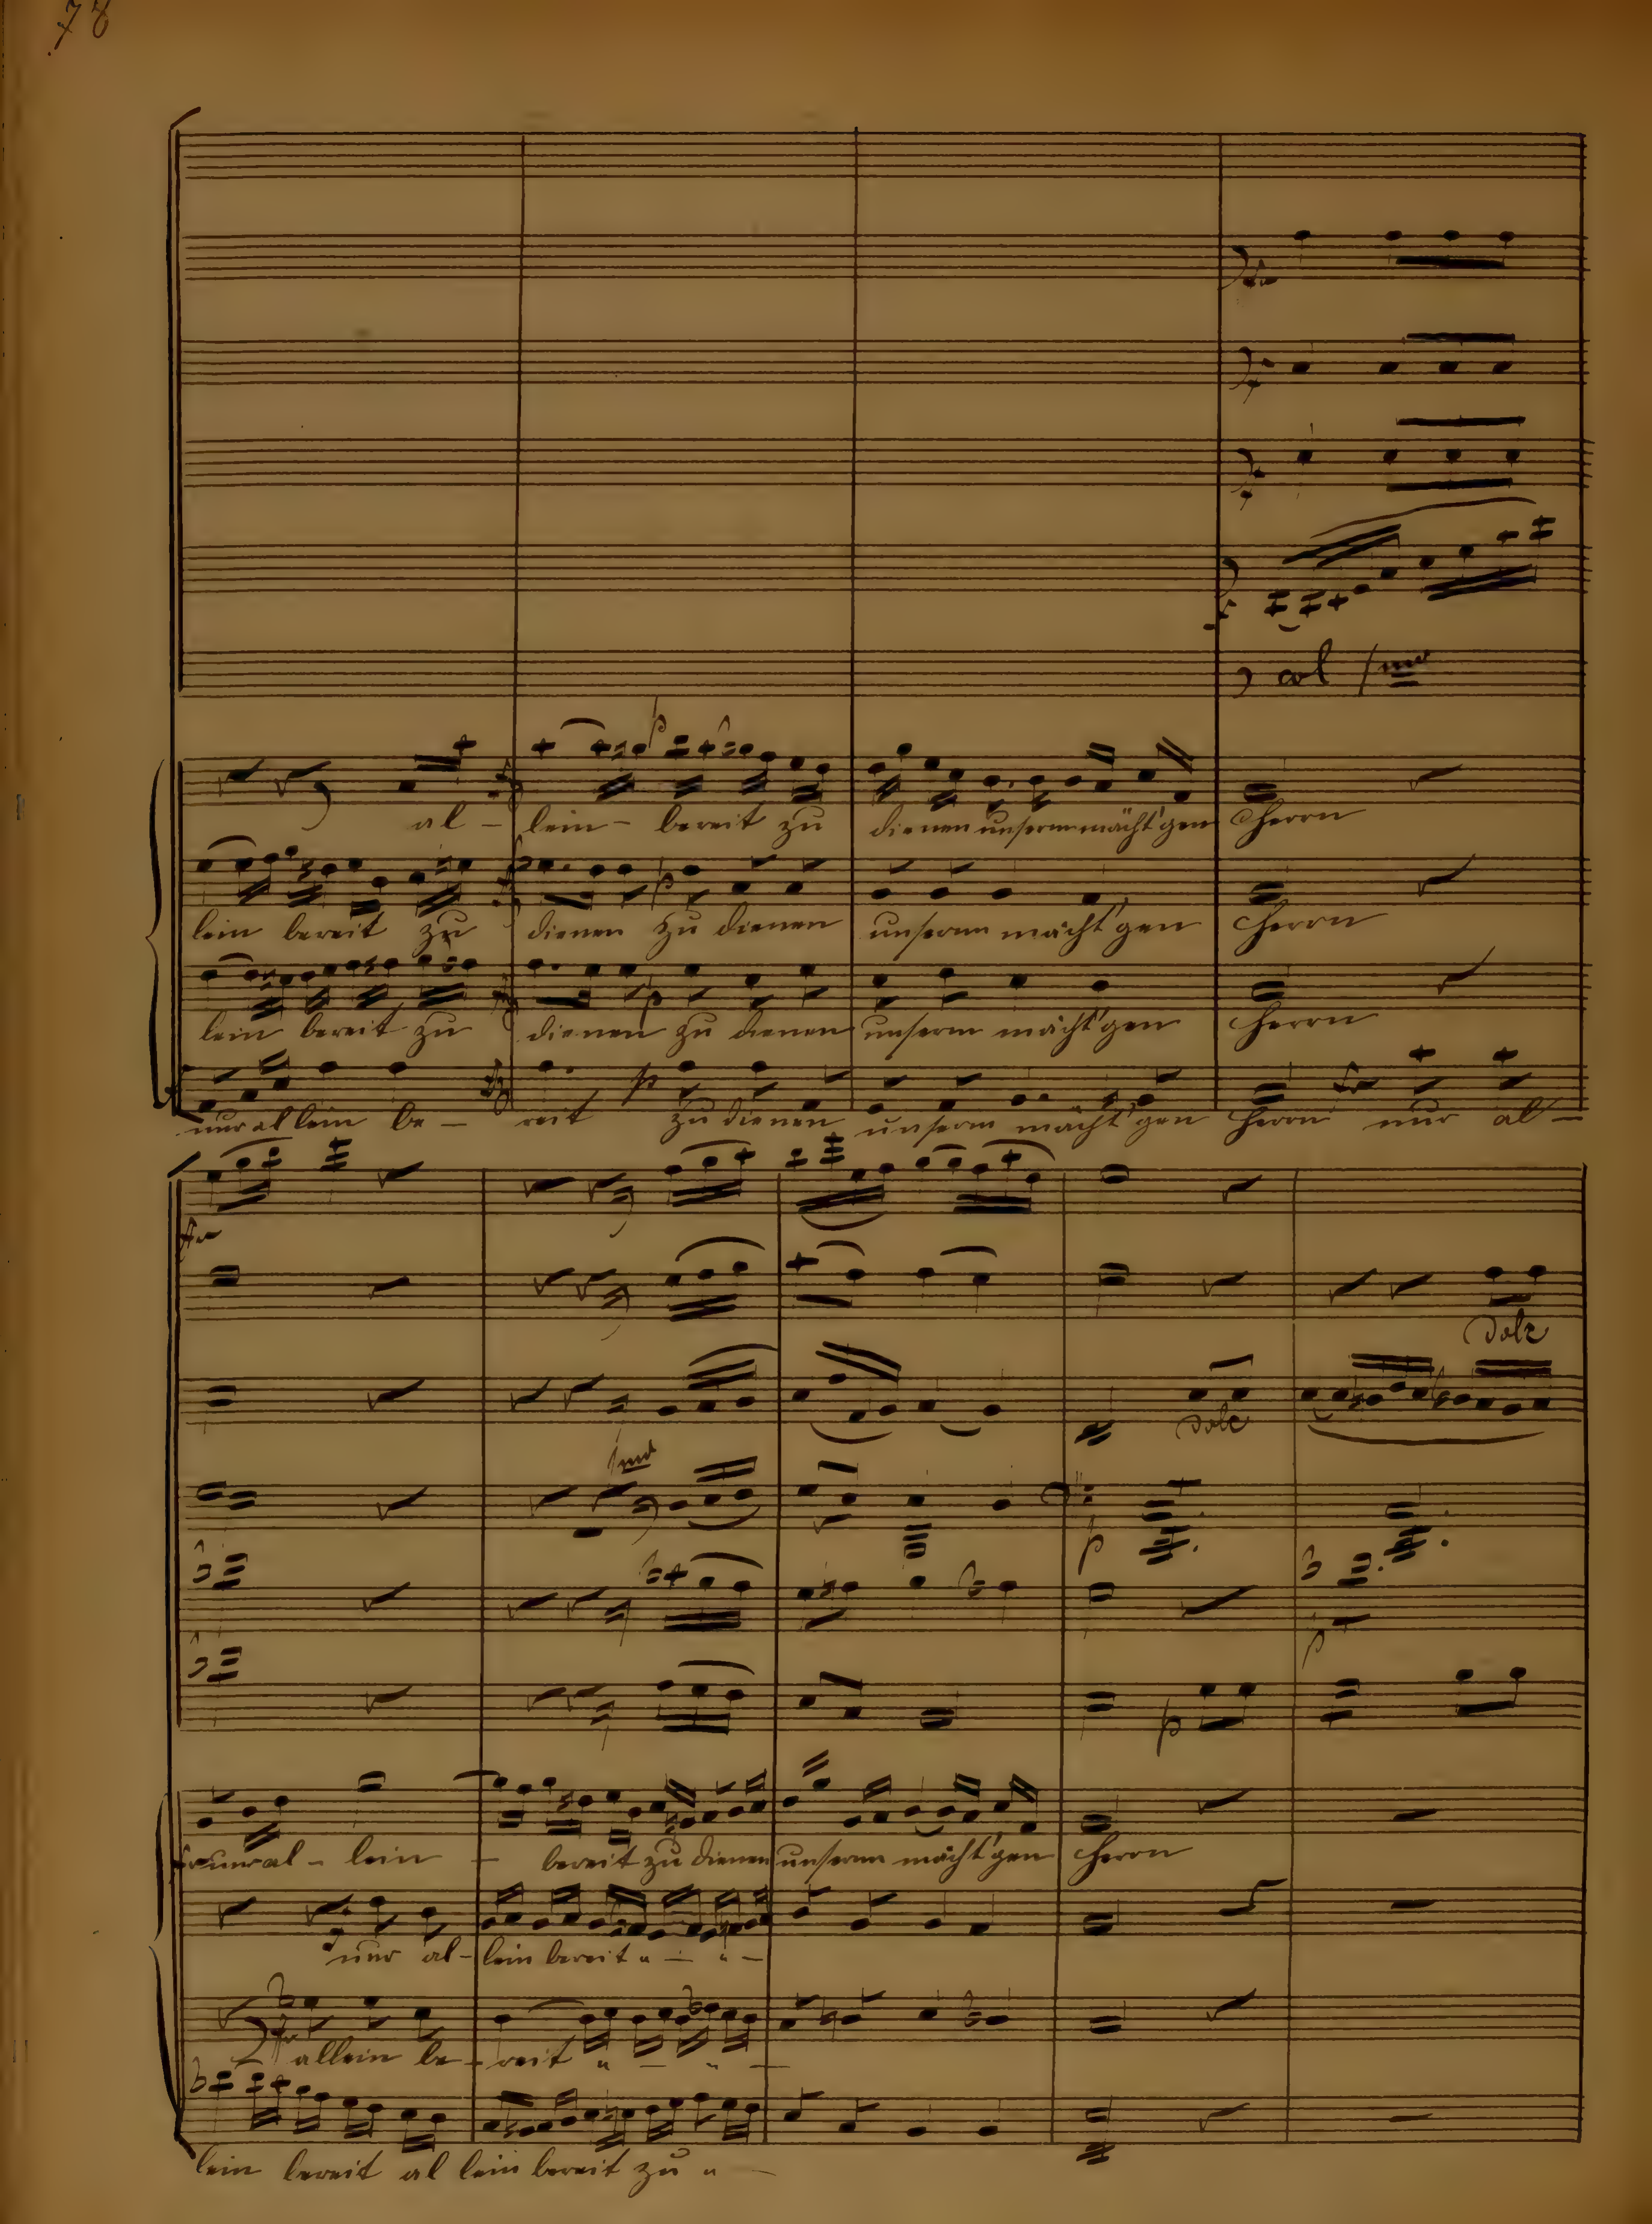 78
col
al - lein - bereit zu dienen unserm mächt'gen Herrn
lein bereit zu dienen zu dienen unserm mächt'gen Herrn
lein bereit zu dienen zu dienen unserm mächt'gen Herrn
p
nur allein be - reit zu dienen unserm mächt'gen Herrn nur al -
dolc
dolc
p
p
p
nur al - lein - bereit zu dienen unserm mächt'gen Herrn
nur al - lein bereit " - " -
allein be - reit " - " -
lein bereit al lein bereit zu " -